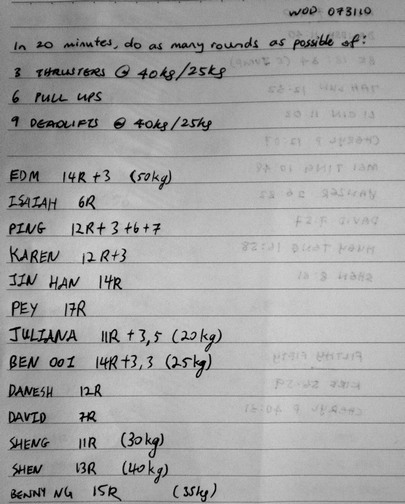 WOD 073110
In 20 minutes, do as many rounds as possible of:
3 THRUSTERS @ 40kg/25kg
6 PULL UPS
9 DEADLIFTS @ 40kg/25kg
EDM 14R +3 (50kg)
ISAIAH 6R
PING 12R + 3 +6 +7
KAREN 12R+3
JIN HAN 14R
PEY 17R
JULIANA 11R +3,5 (20kg)
BEN OOI 14R+3,3 (25kg)
DANESH 12R
DAVID 7R
SHENG 11R (30kg)
SHEN 13R (40kg)
BENNY NG 15R (35kg)